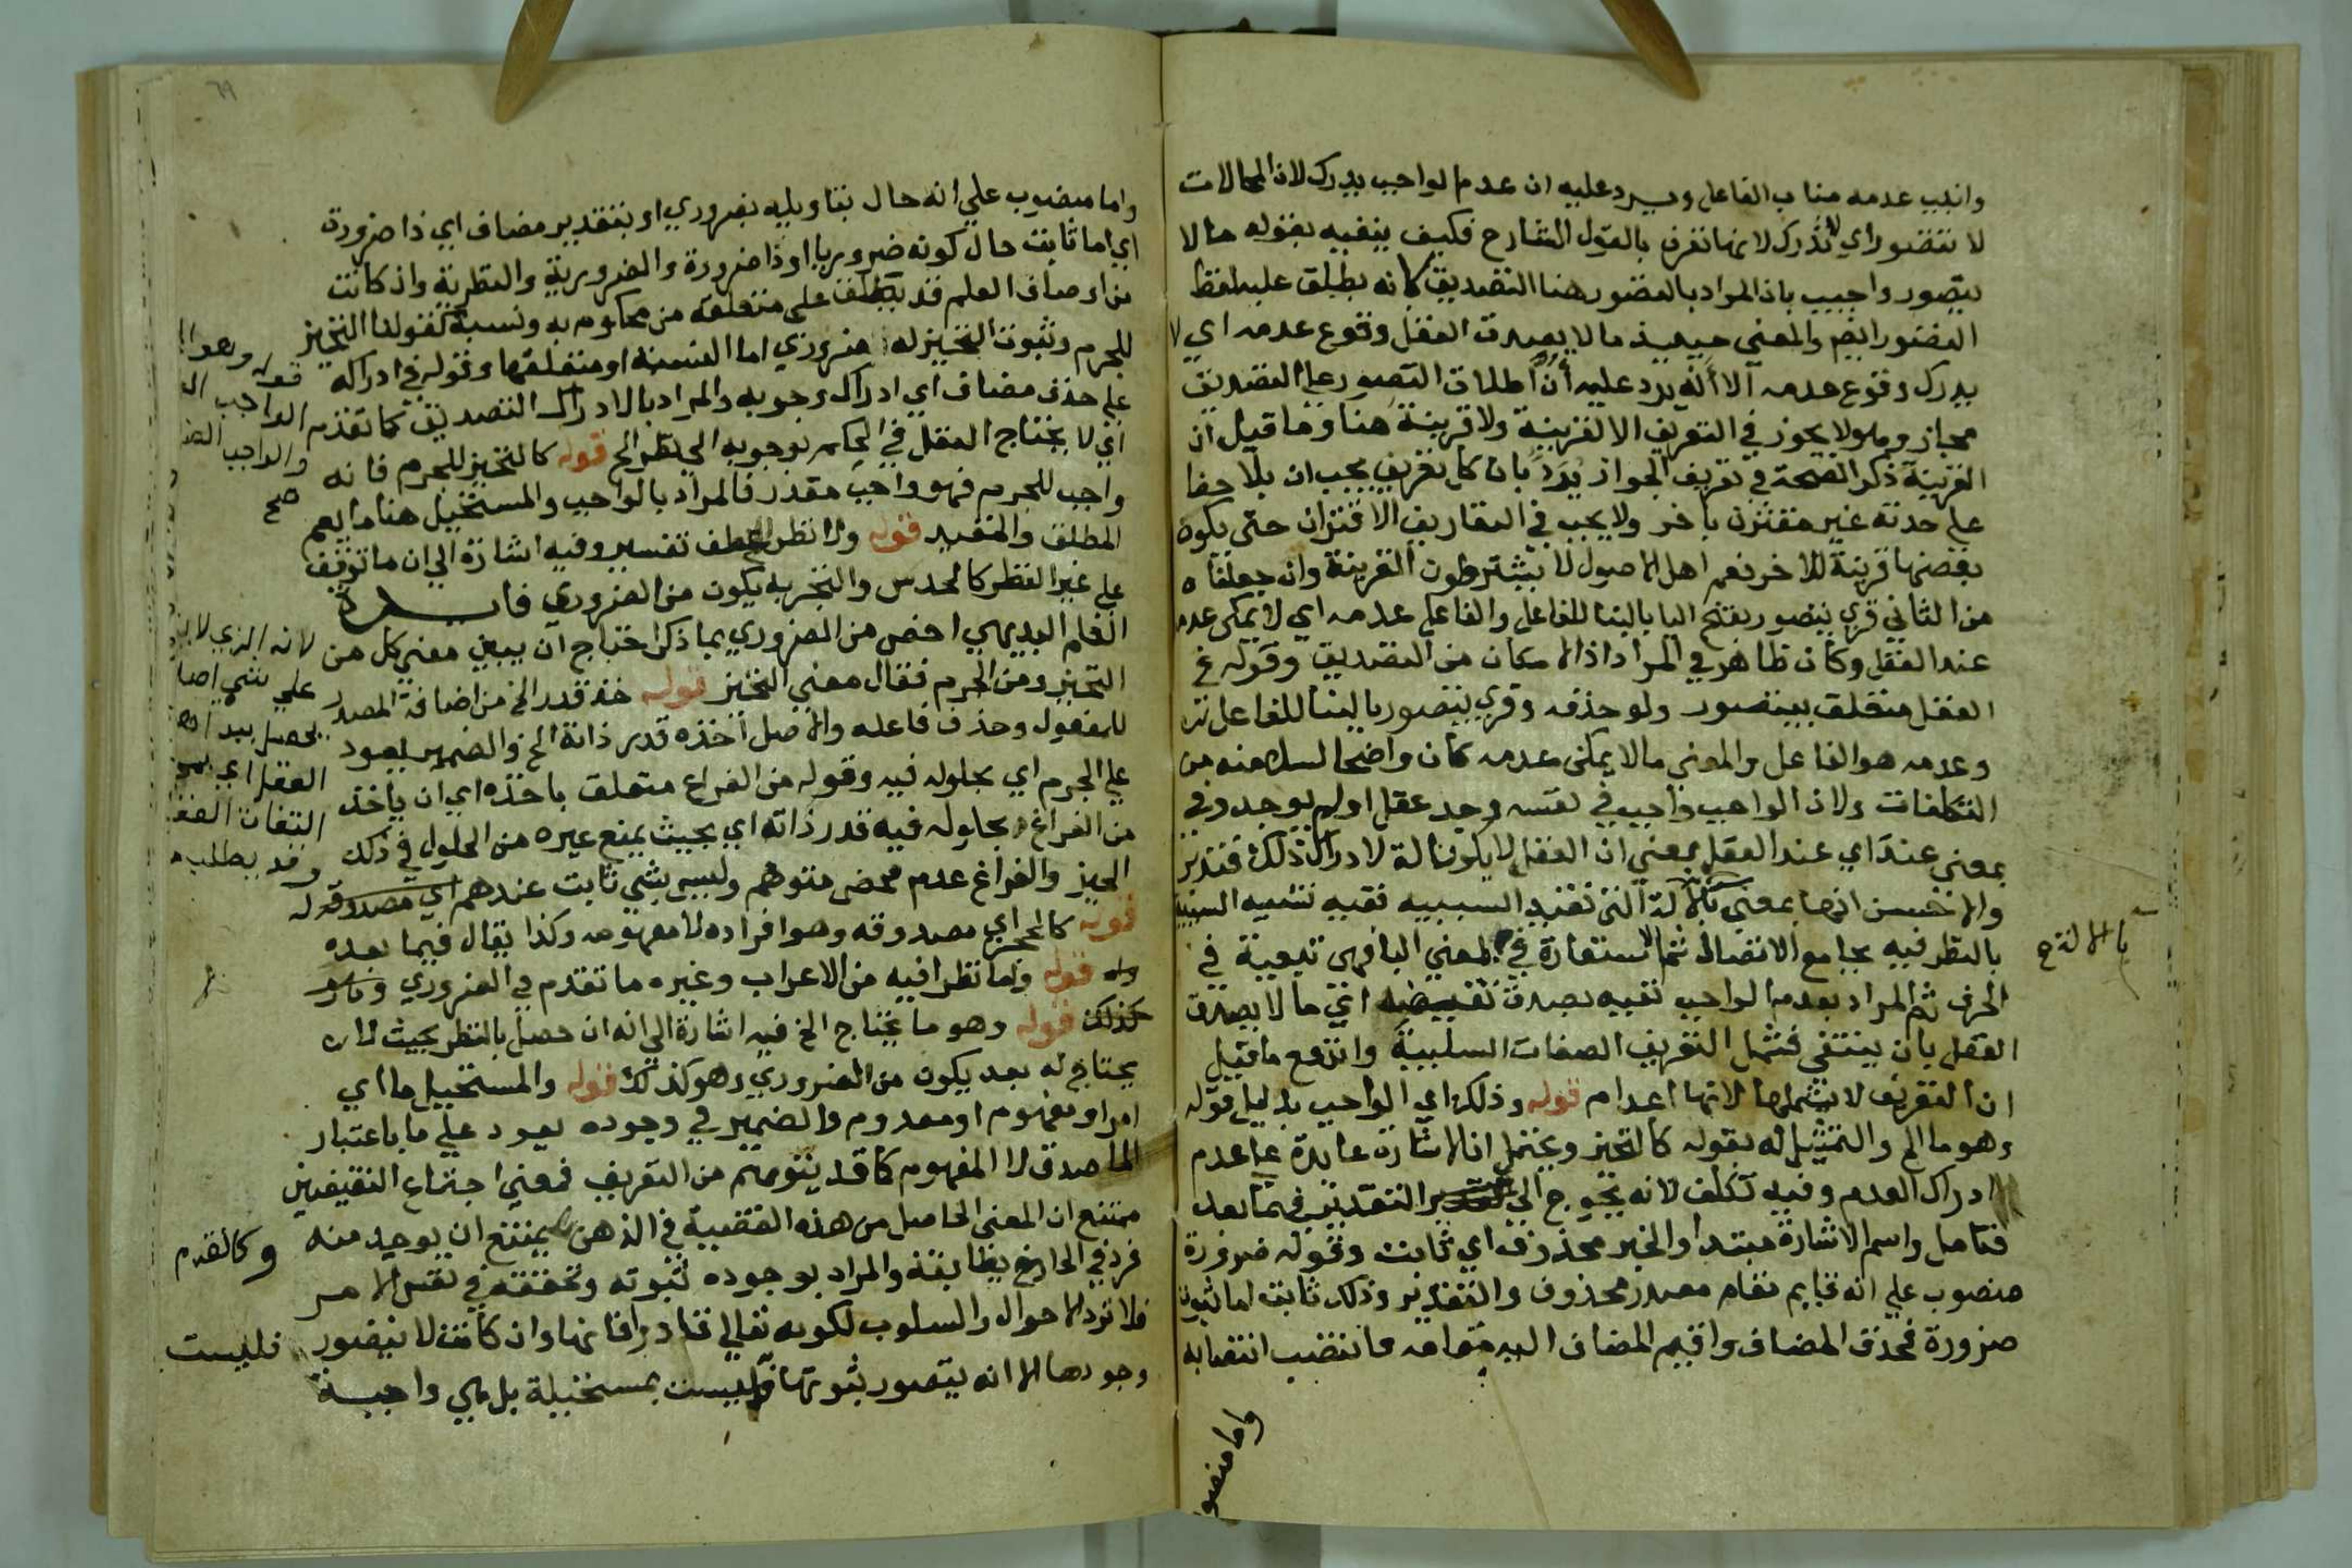 وانيب عدمه مناب الفاعل ويرد عليه ان عدم الواجب يدرك لان المحالات
لا تتصور اي لا تدرك لانها تعرف بالقول الشارح فكيف ينفيه بقوله ما لا
يتصور واجيب بان المراد بالتصور هنا التصديق لانه يطلق عليه لفظ
التصور ايضا والمعنى حينئذ ما لا يصدق العقل وقوع عدمه اي لا
يدرك وقوع عدمه الا انه يرد عليه ان اطلاق التصور على التصديق
مجاز وهو لا يجوز في التعريف الا لقرينة ولا قرينة هنا وما قيل ان
القرينة ذكر الصحة في تعريف الجواز يرد بان كل تعريف يجب ان يلاحظ
على حدته غير مقترن باخر ولا يجب في التعاريف الاقتران حتى يكون
بعضها قرينة للاخر نعم اهل الاصول لا يشترطون القرينة وان جعلناه
من الثاني قرئ يتصور بفتح اليا بالبنا للفاعل والفاعل عدمه اي لا يمكن عدمه
عند العقل وكان ظاهر في المراد اذ الامكان من التصديق وقوله في
العقل متعلق بيتصور ولو حذفه وقرئ يتصور بالبنا للفاعل
وعدمه هو الفاعل والمعنى ما لا يمكن عدمه كان واضحا لسلامته من
التكلفات ولان الواجب واجب في نفسه وجد عقل او لم يوجد وفي
بمعنى عند اي عند العقل بمعنى ان العقل لا يكون الة لادراك ذلك فتدبر
والاحسن انها بمعنى باء الالة التي تفيد السببية ففيه تشبيه السببية
بالظرفية بجامع الاتصال ثم الاستعارة في المعنى الباء فهي تبعية في
باء الالة صح
الحرف ثم المراد بعدم الواجب نفيه بصدق نقيضه اي ما لا يصدق
العقل بان ينتفي فشمل التعريف الصفات السلبية واندفع ما قيل
ان التعريف لا يشملها لانها اعدام قوله وذلك اي الواجب بدليل قوله
وهو ما الخ والتمثيل له بقوله كالتحيز ويحتمل ان الاشارة عايدة على عدم
ادراك العدم وفيه تكلف لانه يحوج الى التقدير فيما بعد
فتامل واسم الاشارة مبتدا والخبر محذوف اي ثابت وقوله ضرورة
منصوب على انه قايم مقام مصدر محذوف والتقدير وذلك ثابت اما ثبوت
ضرورة فحذف المضاف واقيم المضاف اليه مقامه فانتصب انتصابه
واما منصوب
٦٩
واما منصوب على انه حال بتاويله بضروري او بتقدير مضاف اي ذا ضرورة
اي اما ثابت حال كونه ضروريا او ذا ضرورة والضرورية والنظرية وان كانت
من اوصاف العلم قد تطلق على متعلقه من محكوم به ونسبة كقولنا التحيز
للجرم وثبوت التحيز له ضروري اما النسبة او متعلقها وقوله في ادراكه
على حذف مضاف اي ادراك وجوبه والمراد بالادراك التصديق كما تقدم
اي لا يحتاج العقل في الحكم بوجوبه الى نظر الخ قوله كالتحيز للجرم فانه
واجب للجرم فهو واجب مقدر فالمراد بالواجب والمستحيل هنا ما يعم
المطلق والمقيد قوله ولا نظر العطف تفسير وفيه اشارة الى ان ما توقف
على غير النظر كالحدس والتجربه يكون من الضروري فايدة
العلم البديهي اخص من الضروري بما ذكر احتاج ان يبين معنى كل من
التحيز ومن الجرم فقال معنى التحيز قوله اخذه قدر الخ من اضافة المصدر
للمفعول وحذف فاعله والاصل اخذه قدر ذاته الخ والضمير يعود
على الجرم اي بحلوله فيه وقوله من الفراغ متعلق باخذه اي ان ياخذ
من الفراغ بحلوله فيه قدر ذاته اي بحيث يمنع غيره من الحلول في ذلك
الحيز والفراغ عدم محض متوهم وليس بشي ثابت عندهم اي مصدوقه
قوله كالحجر اي مصدوقه وهو افراده لا مفهومه وكذا يقال فيما بعده
قوله واما نظرا فيه من الاعراب وغيره ما تقدم في الضروري
كذلك قوله وهو ما يحتاج الخ فيه اشارة الى انه ان حصل بالنظر بحيث لا
يحتاج له بعد يكون من الضروري وهو كذلك قوله والمستحيل ما اي
امر او مفهوم او معدوم والضمير في وجوده يعود على ما باعتبار
الماصدق لا المفهوم كما قد يتوهم من التعريف فمعنى اجتماع النقيضين
ممتنع ان المعنى الحاصل من هذه القضية في الذهن يمتنع ان يوجد منه
فرد في الخارج يطابقه والمراد بوجوده ثبوته وتحققه في نفس الامر
فلا ترد الاحوال والسلوب لكونه تعالى قادرا فانها وان كانت لا يتصور
وجودها الا انه يتصور ثبوتها فليست بمستحيلة بل هي واجبة
صح
لانه الذي لا
على شي اصلا
العقل اي
التفات العقل
وقد يطلب
وكالقدم
فليست